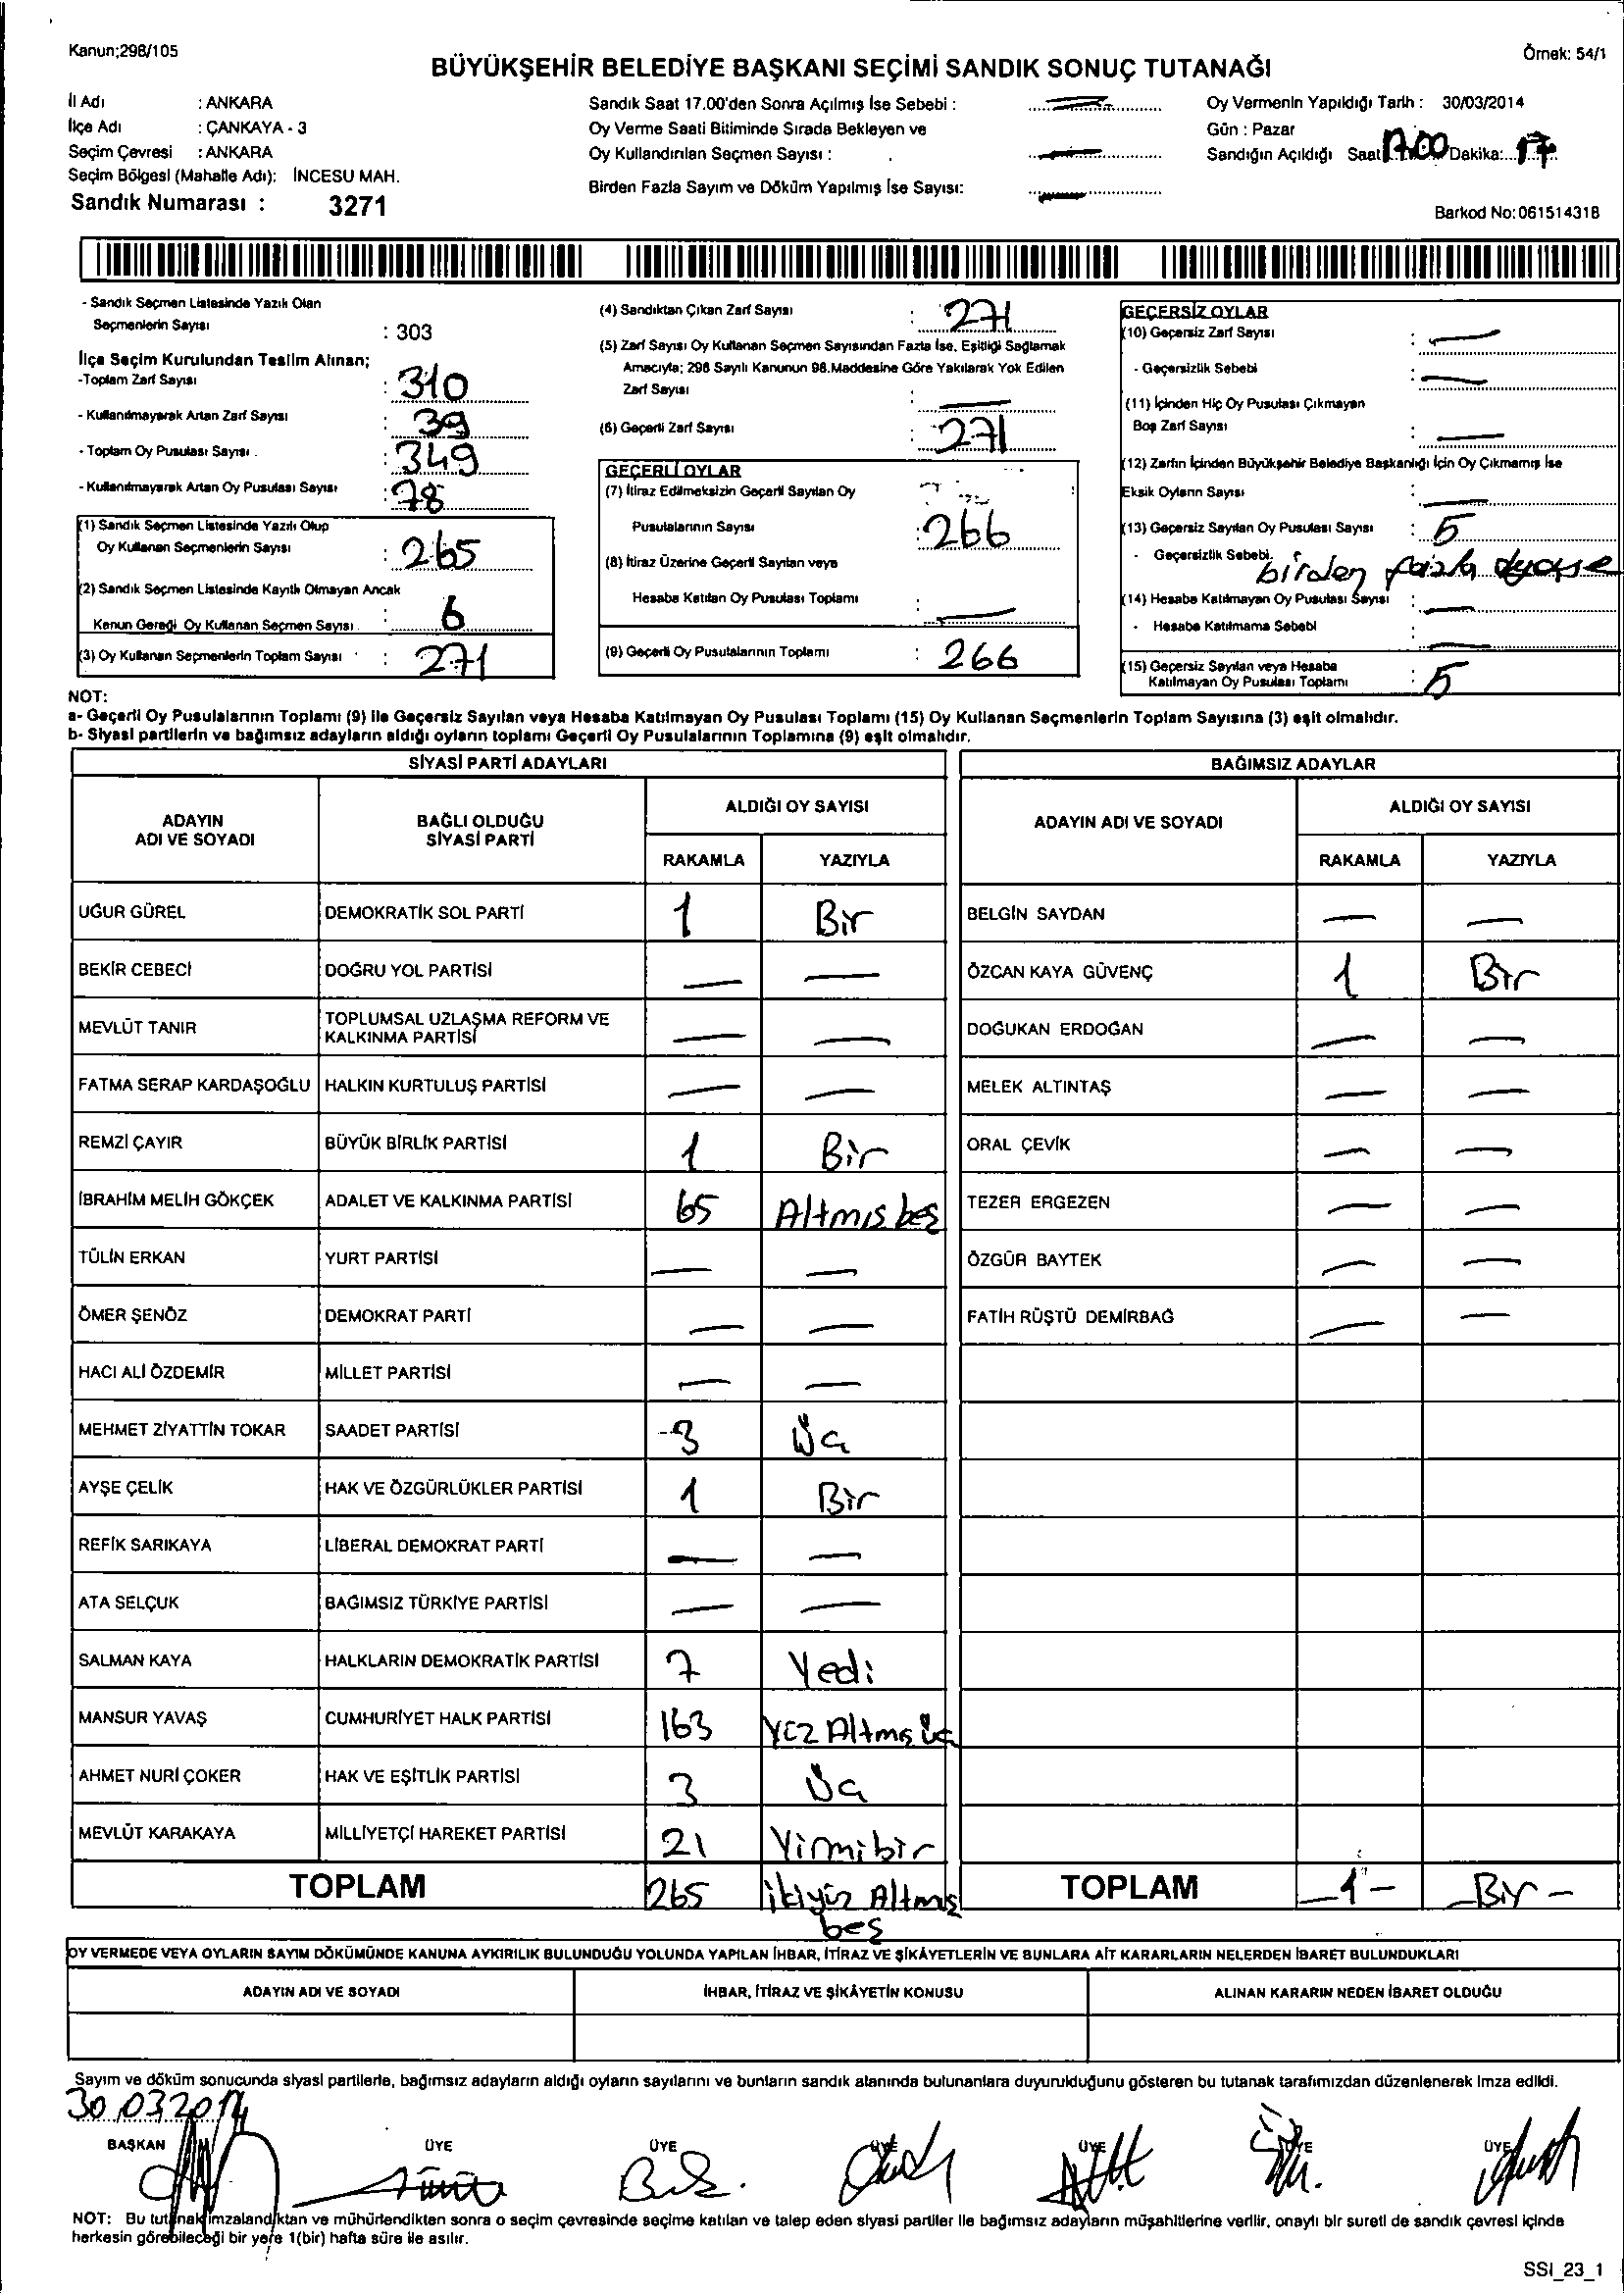 Kanun;298/105
Örnek: 54/1
BÜYÜKŞEHİR BELEDİYE BAŞKANI SEÇİMİ SANDIK SONUÇ TUTANAĞI
İl Adı : ANKARA
İlçe Adı : ÇANKAYA - 3
Seçim Çevresi : ANKARA
Seçim Bölgesi (Mahalle Adı): İNCESU MAH.
Sandık Numarası : 3271
Sandık Saat 17.00'den Sonra Açılmış İse Sebebi : —
Oy Verme Saati Bitiminde Sırada Bekleyen ve
Oy Kullandırılan Seçmen Sayısı : —
Birden Fazla Sayım ve Döküm Yapılmış İse Sayısı: —
Oy Vermenin Yapıldığı Tarih : 30/03/2014
Gün : Pazar
Sandığın Açıldığı Saat 17.00 Dakika: 17
Barkod No: 061514318
- Sandık Seçmen Listesinde Yazılı Olan
Seçmenlerin Sayısı : 303
İlçe Seçim Kurulundan Teslim Alınan;
-Toplam Zarf Sayısı : 310
- Kullanılmayarak Artan Zarf Sayısı : 39
- Toplam Oy Pusulası Sayısı : 349
- Kullanılmayarak Artan Oy Pusulası Sayısı : 78
(1) Sandık Seçmen Listesinde Yazılı Olup
Oy Kullanan Seçmenlerin Sayısı : 265
(2) Sandık Seçmen Listesinde Kayıtlı Olmayan Ancak
Kanun Gereği Oy Kullanan Seçmen Sayısı : 6
(3) Oy Kullanan Seçmenlerin Toplam Sayısı : 271
(4) Sandıktan Çıkan Zarf Sayısı : 271
(5) Zarf Sayısı Oy Kullanan Seçmen Sayısından Fazla İse, Eşitliği Sağlamak
Amacıyla; 298 Sayılı Kanunun 98.Maddesine Göre Yakılarak Yok Edilen
Zarf Sayısı : —
(6) Geçerli Zarf Sayısı : 271
GEÇERLİ OYLAR
(7) İtiraz Edilmeksizin Geçerli Sayılan Oy
Pusulalarının Sayısı : 266
(8) İtiraz Üzerine Geçerli Sayılan veya
Hesaba Katılan Oy Pusulası Toplamı : —
(9) Geçerli Oy Pusulalarının Toplamı : 266
GEÇERSİZ OYLAR
(10) Geçersiz Zarf Sayısı : —
- Geçersizlik Sebebi : —
(11) İçinden Hiç Oy Pusulası Çıkmayan
Boş Zarf Sayısı : —
(12) Zarfın İçinden Büyükşehir Belediye Başkanlığı İçin Oy Çıkmamış İse
Eksik Oyların Sayısı : —
(13) Geçersiz Sayılan Oy Pusulası Sayısı : 5
- Geçersizlik Sebebi. : birden fazla
(14) Hesaba Katılmayan Oy Pusulası Sayısı : —
- Hesaba Katılmama Sebebi : —
(15) Geçersiz Sayılan veya Hesaba
Katılmayan Oy Pusulası Toplamı : 5
NOT:
a- Geçerli Oy Pusulalarının Toplamı (9) ile Geçersiz Sayılan veya Hesaba Katılmayan Oy Pusulası Toplamı (15) Oy Kullanan Seçmenlerin Toplam Sayısına (3) eşit olmalıdır.
b- Siyasi partilerin ve bağımsız adayların aldığı oyların toplamı Geçerli Oy Pusulalarının Toplamına (9) eşit olmalıdır.
SİYASİ PARTİ ADAYLARI
ADAYIN ADI VE SOYADI
BAĞLI OLDUĞU SİYASİ PARTİ
ALDIĞI OY SAYISI
RAKAMLA YAZIYLA
UĞUR GÜREL DEMOKRATİK SOL PARTİ 1 Bir
BEKİR CEBECİ DOĞRU YOL PARTİSİ — —
MEVLÜT TANIR TOPLUMSAL UZLAŞMA REFORM VE KALKINMA PARTİSİ — —
FATMA SERAP KARDAŞOĞLU HALKIN KURTULUŞ PARTİSİ — —
REMZİ ÇAYIR BÜYÜK BİRLİK PARTİSİ 1 Bir
İBRAHİM MELİH GÖKÇEK ADALET VE KALKINMA PARTİSİ 65 Altmış beş
TÜLİN ERKAN YURT PARTİSİ — —
ÖMER ŞENÖZ DEMOKRAT PARTİ — —
HACI ALİ ÖZDEMİR MİLLET PARTİSİ — —
MEHMET ZİYATTİN TOKAR SAADET PARTİSİ 3 Üç
AYŞE ÇELİK HAK VE ÖZGÜRLÜKLER PARTİSİ 1 Bir
REFİK SARIKAYA LİBERAL DEMOKRAT PARTİ — —
ATA SELÇUK BAĞIMSIZ TÜRKİYE PARTİSİ — —
SALMAN KAYA HALKLARIN DEMOKRATİK PARTİSİ 7 Yedi
MANSUR YAVAŞ CUMHURİYET HALK PARTİSİ 163 Yüz Altmış üç
AHMET NURİ ÇOKER HAK VE EŞİTLİK PARTİSİ 3 Üç
MEVLÜT KARAKAYA MİLLİYETÇİ HAREKET PARTİSİ 21 Yirmibir
TOPLAM 265 ikiyüz Altmış beş
BAĞIMSIZ ADAYLAR
ADAYIN ADI VE SOYADI
ALDIĞI OY SAYISI
RAKAMLA YAZIYLA
BELGİN SAYDAN — —
ÖZCAN KAYA GÜVENÇ 1 Bir
DOĞUKAN ERDOĞAN — —
MELEK ALTINTAŞ — —
ORAL ÇEVİK — —
TEZER ERGEZEN — —
ÖZGÜR BAYTEK — —
FATİH RÜŞTÜ DEMİRBAĞ — —
TOPLAM —1— —Bir—
OY VERMEDE VEYA OYLARIN SAYIM DÖKÜMÜNDE KANUNA AYKIRILIK BULUNDUĞU YOLUNDA YAPILAN İHBAR, İTİRAZ VE ŞİKÂYETLERİN VE BUNLARA AİT KARARLARIN NELERDEN İBARET BULUNDUKLARI
ADAYIN ADI VE SOYADI İHBAR, İTİRAZ VE ŞİKÂYETİN KONUSU ALINAN KARARIN NEDEN İBARET OLDUĞU
Sayım ve döküm sonucunda siyasi partilerle, bağımsız adayların aldığı oyların sayılarını ve bunların sandık alanında bulunanlara duyurulduğunu gösteren bu tutanak tarafımızdan düzenlenerek imza edildi.
30.03.2014
BAŞKAN ÜYE ÜYE ÜYE ÜYE ÜYE ÜYE
NOT: Bu tutanak imzalandıktan ve mühürlendikten sonra o seçim çevresinde seçime katılan ve talep eden siyasi partiler ile bağımsız adayların müşahitlerine verilir, onaylı bir sureti de sandık çevresi içinde
herkesin görebileceği bir yere 1(bir) hafta süre ile asılır.
SSI_23_1